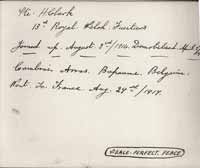 Pte. H Clark
13th Royal Welch Fusiliers
Joined up. August. 3rd/1914. Demobilised April
Cambrai. Arras. Bapaume. Belgium.
Went. To. France Aug 29th/1917.
PEACE-PERFECT-PEACE